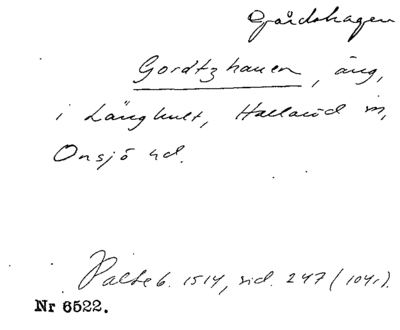 Gårdshagen
Gordtzhauen, äng,
i Långhult, Hallaröd sn,
Onsjö hd.
Palteb. 1514, sid. 247 (104r).
Nr 6522.